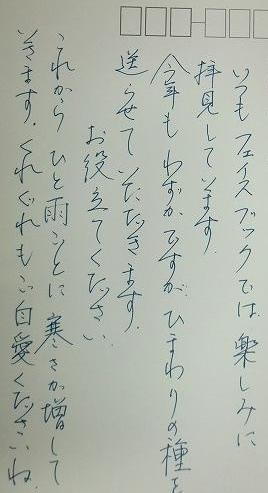 いつもフェイスブックでは楽しみに
拝見しています。
今年もわずかですが、ひまわりの種を
送らせていただきます。
お役立てください。
これから ひと雨ごとに寒さが増して
いきます。くれぐれもご自愛くださいね。